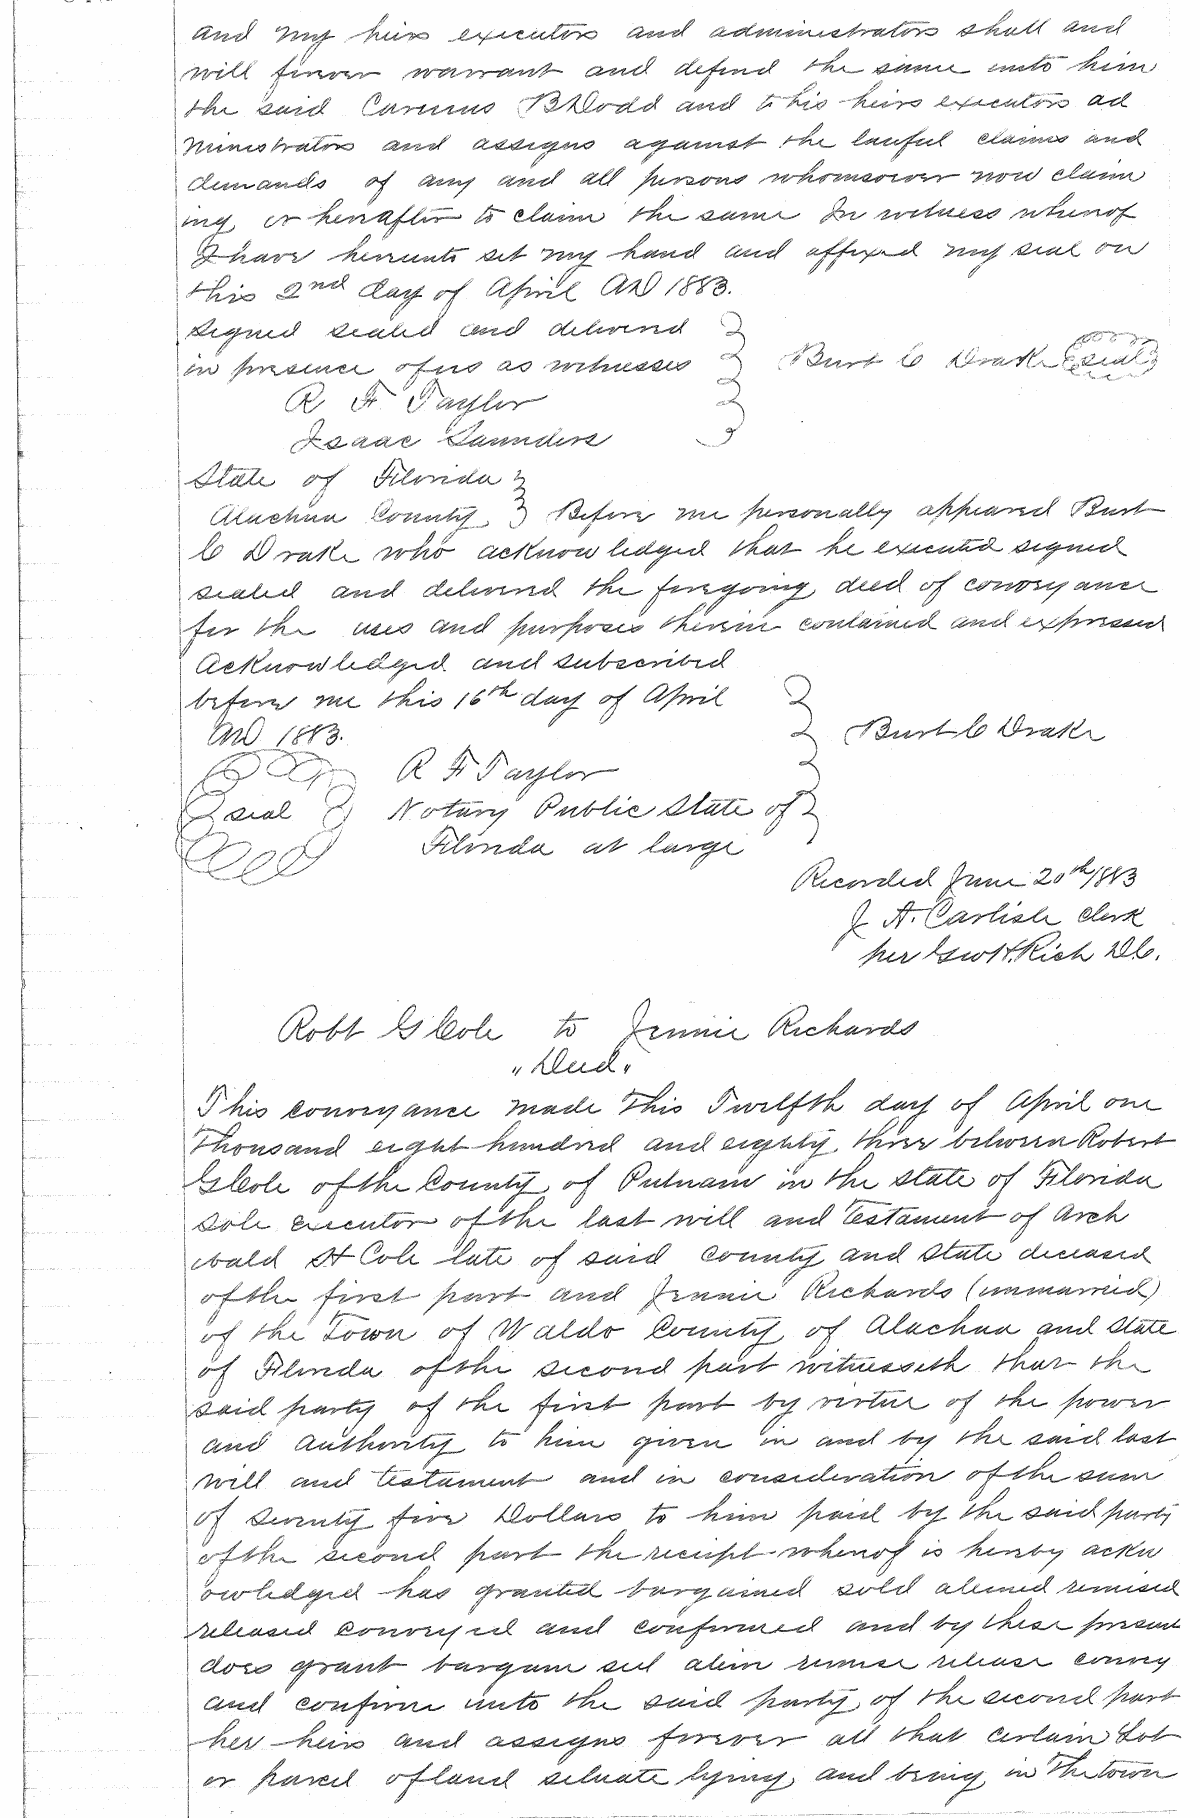 and my heirs executors and administrators shall and
will forever warrant and defend the same unto him
the said B Dodd and to his heirs executors ad
ministrators and assigns against the lawful claims and
demands of any and all persons whomsoever now claim
ing or hereafter to claim the same In witness whereof
I have hereunto set my hand and affixed my seal on
this 2nd day of April AD 1883.
Signed sealed and delivered
in presence of us as witnesses Burt C Drake seal
R F Taylor
Isaac Saunders
State of Florida
Alachua County Before me personally appeared Burt
C Drake who acknowledged that he executed signed
sealed and delivered the foregoing deed of conveyance
for the uses and purposes therein contained and expressed
Acknowledged and subscribed
before me this 16th day of April
AD 1883. Burt C Drake
R F Taylor
seal Notary Public State of
Florida at large
Recorded June 20th/1883
J A. Carlisle Clerk
per Geo H. Rich D.C.
Robt G Cole to Jennie Richards
"Deed"
This conveyance made this Twelfth day of April one
Thousand eight hundred and eighty three between Robert
G Cole of the County of Putnam in the state of Florida
sole executor of the last will and testament of Arch
ibald H Cole late of said County and State deceased
of the first part and Jennie Richards (unmarried)
of the Town of Waldo County of Alachua and State
of Florida of the second part witnesseth that the
said party of the first part by virtue of the power
and authority to him given in and by the said last
will and testament and in consideration of the sum
of Seventy five Dollars to him paid by the said party
of the second part the receipt whereof is hereby ackn
owledged has granted bargained sold aliened remised
released conveyed and confirmed and by these present
does grant bargain sell alien remise release convey
and confirm unto the said party of the second part
her heirs and assigns forever all that certain Lot
or parcel of land situate lying and being in the town